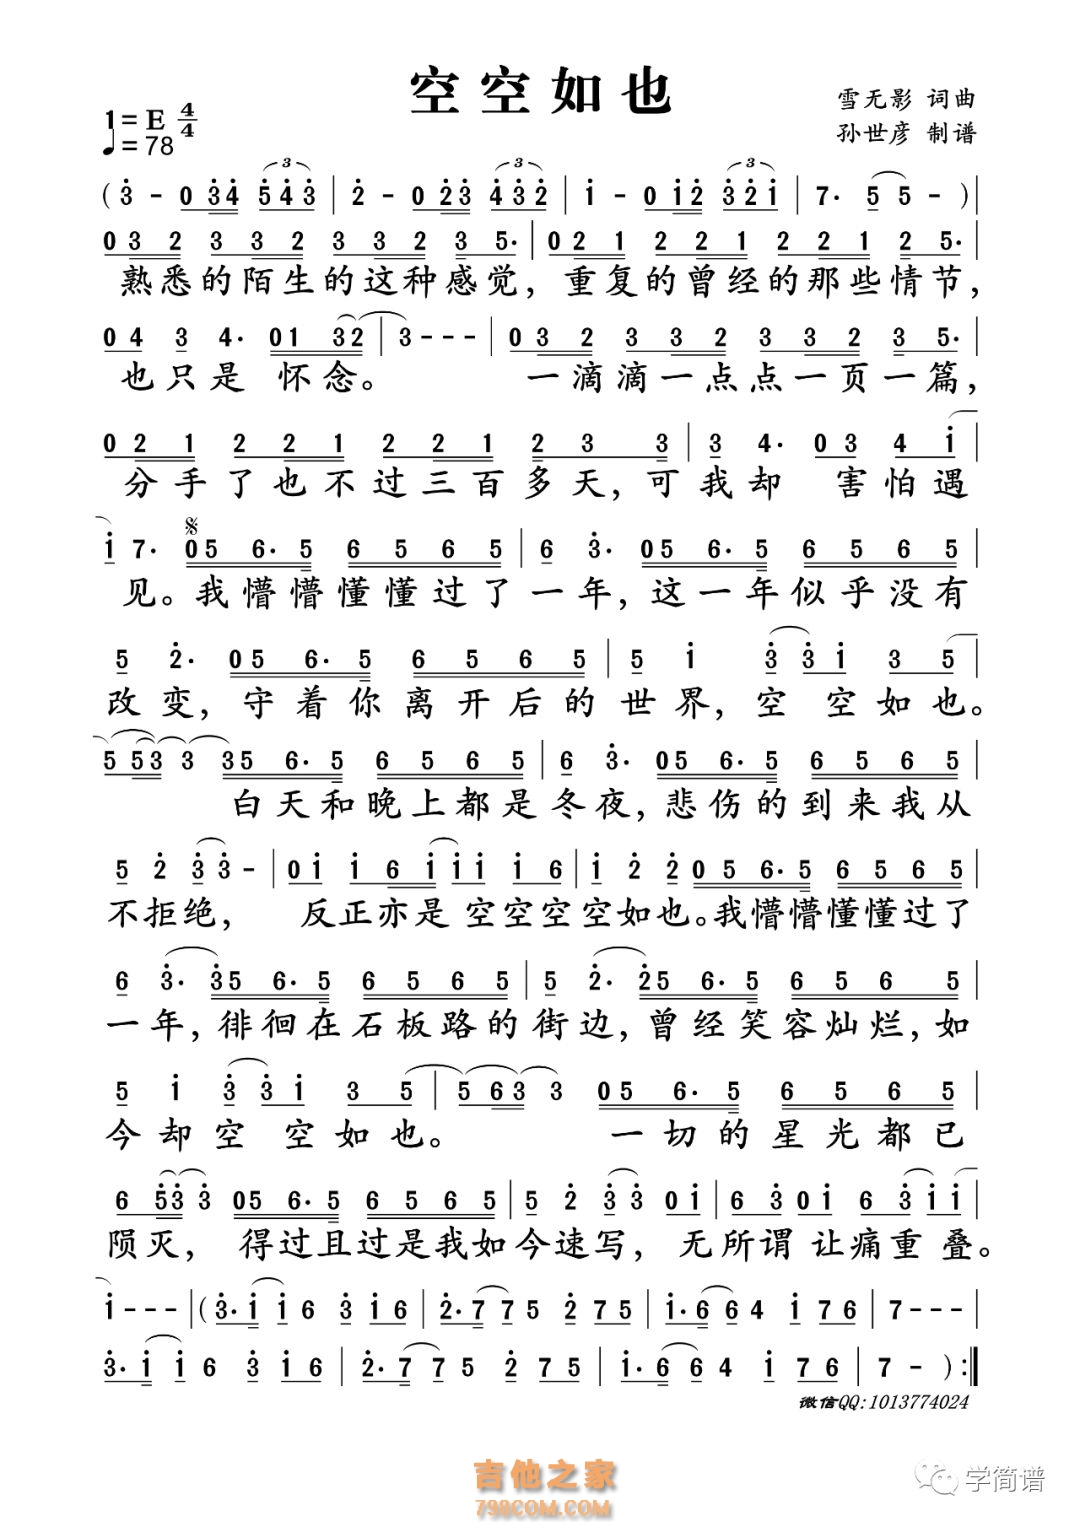 空空如也
雪无影 词曲
1=E 4/4
♩=78
孙世彦 制谱
(3 - 0 34 543 | 2 - 0 23 432 | 1 - 0 12 321 | 7. 5 5 - )|
0 3 2 3 3 2 3 3 2 3 5. | 0 2 1 2 2 1 2 2 1 2 5. |
熟悉的陌生的这种感觉，重复的曾经的那些情节，
0 4 3 4. 01 32 | 3 - - - | 0 3 2 3 3 2 3 3 2 3 5. |
也只是 怀念。 一滴滴一点点一页一篇，
0 2 1 2 2 1 2 2 1 2 3 3 | 3 4. 0 3 4 1 |
分手了也不过三百多天，可我却 害怕遇
1 7. 05 6. 5 6 5 6 5 | 6 3. 05 6. 5 6 5 6 5 |
见。我懵懵懂懂过了一年，这一年似乎没有
5 2. 05 6. 5 6 5 6 5 | 5 1 3 31 3 5 |
改变，守着你离开后的世界，空 空如也。
5 53 3 35 6. 5 6 5 6 5 | 6 3. 05 6. 5 6 5 6 5 |
白天和晚上都是冬夜，悲伤的到来我从
5 2 3 3 - | 01 1 6 1 11 1 6 | 1 2 2 05 6. 5 6 5 6 5 |
不拒绝， 反正亦是 空空空空如也。我懵懵懂懂过了
6 3. 35 6. 5 6 5 6 5 | 5 2. 25 6. 5 6 5 6 5 |
一年，徘徊在石板路的街边，曾经笑容灿烂，如
5 1 3 31 3 5 | 5 63 3 05 6. 5 6 5 6 5 |
今却空 空如也。 一切的星光都已
6 53 3 05 6. 5 6 5 6 5 | 5 2 3 3 01 | 6 3 01 6 3 1 1 |
陨灭， 得过且过是我如今速写， 无所谓 让痛重叠。
1 - - - |(3. 1 1 6 3 1 6 | 2. 7 7 5 2 7 5 | 1. 6 6 4 1 7 6 | 7 - - - |
3. 1 1 6 3 1 6 | 2. 7 7 5 2 7 5 | 1. 6 6 4 1 7 6 | 7 - ):||
微信QQ:1013774024
吉他之家
798COM.COM
学简谱